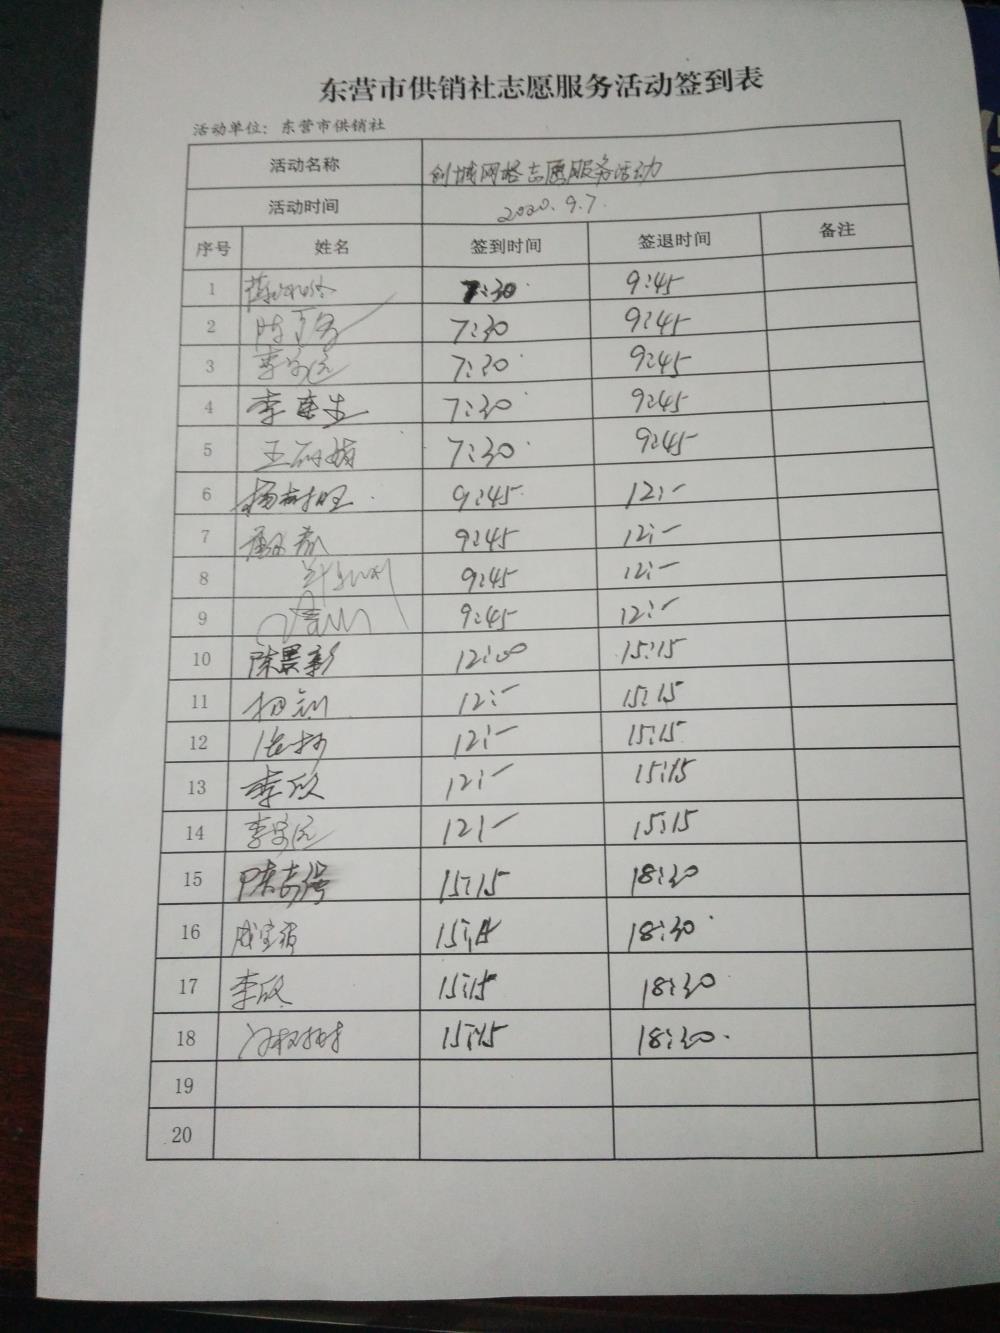 东营市供销社志愿服务活动签到表
活动单位：东营市供销社
活动名称 创城网格志愿服务活动
活动时间 2020.9.7.
序号 姓名 签到时间 签退时间 备注
1 7:30 9:45
2 7:30 9:45
3 李守远 7:30 9:45
4 李 生 7:30 9:45
5 王丽娟 7:30 9:45
6 杨 旺 9:45 12:-
7 9:45 12:-
8 9:45 12:-
9 9:45 12:-
10 陈景新 12:00 15:15
11 12:- 15:15
12 12:- 15:15
13 李欣 12:- 15:15
14 李守远 12:- 15:15
15 陈志强 15:15 18:30
16 成宝 15:15 18:30
17 李欣 15:15 18:30
18 15:15 18:30.
19
20